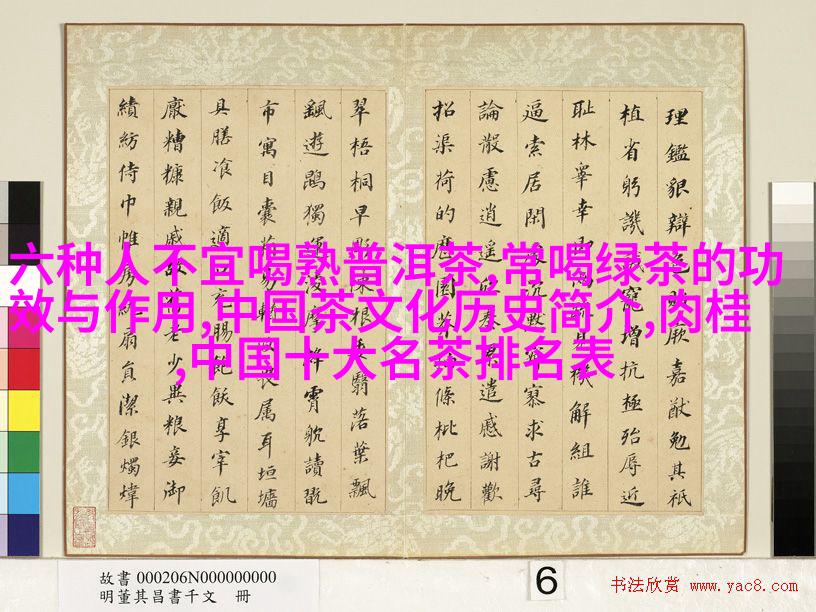 六种人不宜喝熟普洱茶,常喝绿茶的功
效与作用,中国茶文化历史简介,肉桂
,中国十大名茶排名表
理鑑貌辯色厥嘉猷勉其祗
植省躬譏寵增抗極殆辱近
恥林睪幸即機解組誰
逼索居閑處沉默寥求古尋
論散慮逍遙欣奏累遣慼謝歡
招渠荷的歷園莽條枇杷晚
翠梧桐早陳根委翳落葉飄
颻遊鵾獨運凌摩絳霄耽讀翫
市寓目囊箱易輶畏属耳垣墻
具膳飡飯適口充腸飽飫享宰飢
厭糟糠親戚故老少異粮妾御
績紡侍巾帷房紈扇員潔銀燭煒
故書 000206N000000000
明董其昌書千文 冊
6
书法欣赏 www.yac8.com